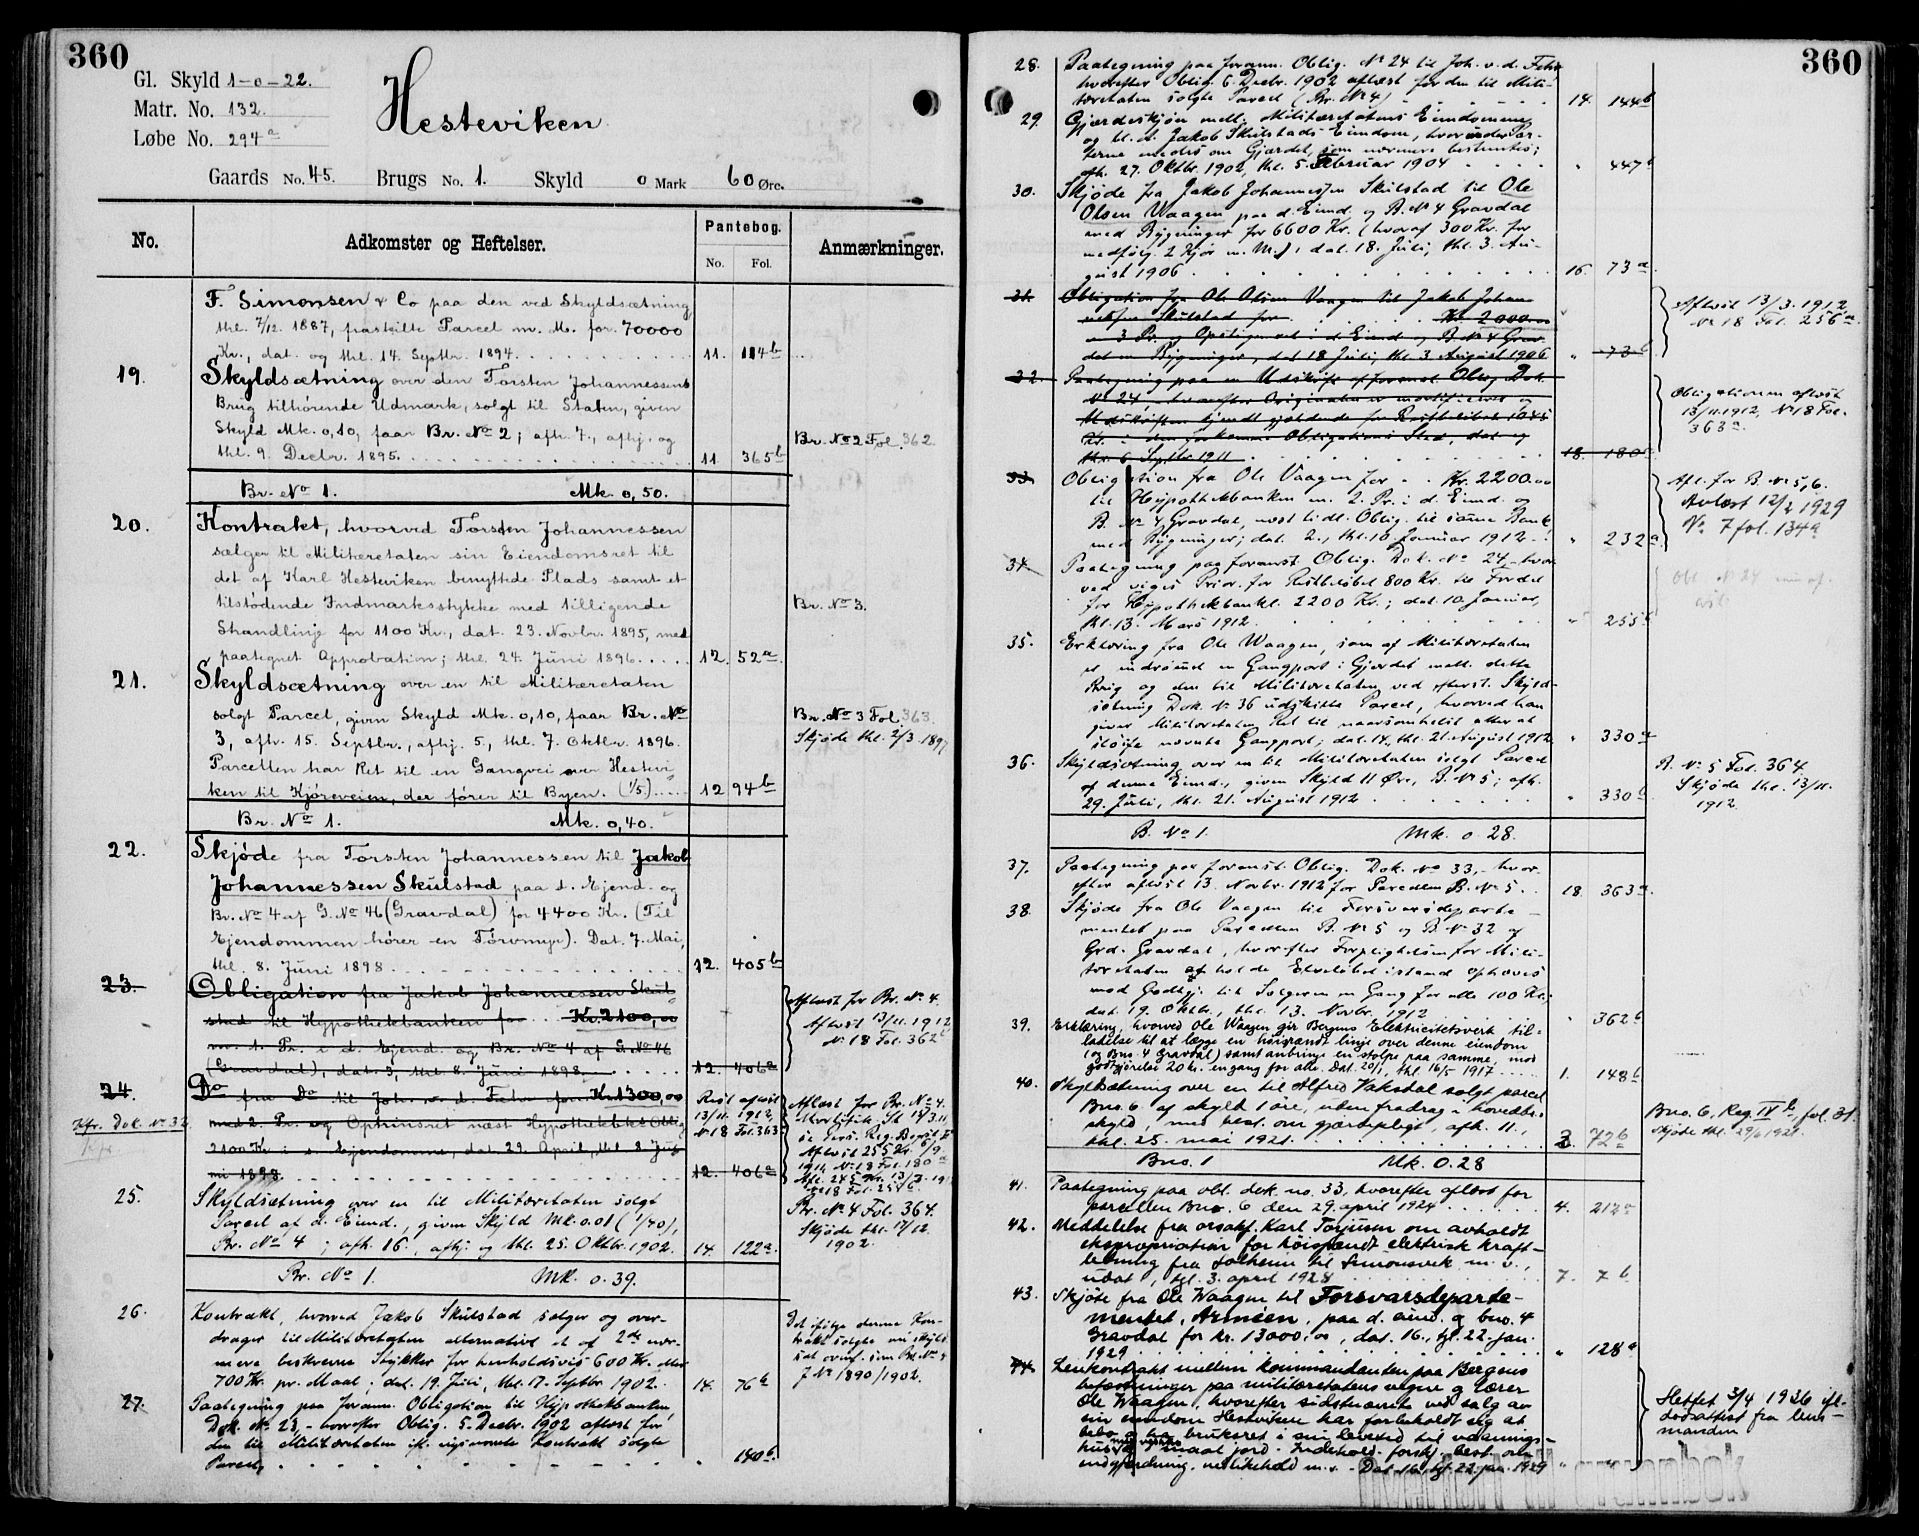 360
Gl. Skyld 1-0-22.
Matr. No. 132.
Løbe No. 294a
Hesteviken
Gaards No. 45. Brugs No. 1. Skyld 0 Mark 60 Øre.
No. Adkomster og Heftelser. Pantebog. Anmærkninger.
No. Fol.
F. Simonsen & Co paa den ved Skyldsætning
thl. 7/12. 1887, fraskilte Parcel m. M. for 70000
Kr., dat. og thl. 14. Septbr. 1894. 11. 114b
19. Skyldsætning over den Torsten Johannessens
Brug tilhørende Udmark, solgt til Staten, given
Skyld Mk. 0,10, faar Br. No 2; afh. 7., afhj. og
thl. 9. Decbr. 1895. 11 365b Br. No 2 Fol. 362
Br. No 1. Mk. 0,50.
20. Kontrakt, hvorved Torsten Johannessen
sælger til Militæretaten sin Eiendomsret til
det af Karl Hesteviken benyttede Plads samt et
tilstødende Indmarksstykke med tilligende Br. No 3.
Strandlinje for 1100 Kr., dat. 23. Novbr. 1895, med
paategnet Approbation; thl. 24. Juni 1896. 12. 52a
21. Skyldsætning over en til Militæretaten
solgt Parcel, given Skyld Mk. 0,10, faar Br. No Br. No 3 Fol. 363.
3, afh. 15. Septbr., afhj. 5., thl. 7. Oktbr. 1896. Skjøde thl. 2/3. 1897
Parcellen har Ret til en Gangvei over Hestevi
ken til Kjøreveien, der fører til Byen. (1/5) 12 94b
Br. No 1. Mk. 0,40.
22. Skjøde fra Torsten Johannessen til Jakob
Johannessen Skulstad paa d. Ejend. og
Br. No 4 af G. No 46 (Gravdal) for 4400 Kr. (Til
Ejendommen hører en Torvmyr). Dat. 7. Mai,
thl. 8. Juni 1898. 12. 405b
23. Obligation fra Jakob Johannessen Skul-
stad til Hypothekbanken for Kr. 2100,00
m. 1. Pr. i d. Ejend. og Br. No 4 af G. No 46
(Gravdal), dat. 3, thl. 8. Juni 1898. 12. 406a
Afløst for Br. No. 4.
Afløst 13/11. 1912
No 18 Fol. 362b
24. Do fra Do til Joh. v. d. Fehr for Kr. 1300,00
med 2. Pr. og Opkrinsret næst Hypothekbks Oblig
2100 Kr i s. Ejendomme, dat. 29. April, thl. 8. Ju-
ni 1898. 12. 406a
Kfr. Dok. No 32
Rest afløst
13/11. 1912,
No 18 Fol. 363
Afløst for Br. No. 4.
25. Skyldsætning over en til Militæretaten solgt
Parcel af d. Eiend., given Skyld Mk. 0.01 (1/40),
Br. No 4; afh. 16., afhj. og thl. 25. Oktbr. 1902. 14. 122a.
Br. No 4 Fol. 364.
Skjøde thl. 17/12.
1902.
Br. No 1. Mk. 0.39.
26. Kontrakt, hvorved Jakob Skulstad sælger og over-
drager til Militæretaten alternativt et af 2de nær-
mere beskrevne Stykker for henholdsvis 600 Kr. eller
700 Kr. pr. Maal; dat. 19. Juli, thl. 17. Septbr. 1902. 14. 76a
Det ifølge denne Kon-
trakt solgte
7 No 1890/1902.
27. Paategning paa forann. Obligation til Hypothekbanken,
Dok. No 23, - hvorefter Oblig. 5. Decbr. 1902 afløst for
den til Militæretaten if. Kontrakt solgte
Parcel, 140b.
360
28. Paategning paa foranm. Oblig. No 24 til Joh. v. d. Fehr
hvorefter Oblig. 6. Decbr. 1902 afløst for den til Mili-
tæretaten solgte Parcel (Br. No 4) 14. 144b
29. Gjærdeskjøn mell. Militæretatens Eiendomme
og bl. a. Jakob Skulstads Eiendom, hvorunder Par-
terne enedes om Gjærdet, som nærmere bestemtes;
afh. 27. Oktbr. 1902, thl. 5. Februar 1904 " 447b
30. Skjøde fra Jakob Johannessen Skulstad til Ole
Olsen Vaagen paa d. Eiend. og B. No 4 Gravdal
med Bygninger for 6600 Kr. (hvoraf 300 Kr. for
medfølg. 2 Kjør m. M.), dat. 18. Juli, thl. 3. Au-
gust 1906 16. 73a.
31. Obligation fra Ole Olsen Vaagen til Jakob Johan-
nessen Skulstad for Kr. 2000.00
m. 3 Pr. og Opstigen. ret i d. Eiend og B No 4 Grav-
dal m. Bygninger, dat 18 Juli, thl. 3 August 1906 " 73b
Afløst 13/3. 1912
No 18 Fol. 256a.
32. Paategning paa en Udskrift af foranst. Oblig. Dok.
No 24, hvorefter Originalen er mortificeret og
Udskriften tjener gjældende for Restbeløbet 1045
Kr. i den forkomne Obligations Sted, dat. og
thl. 6 Septbr 1911 18. 180a
Obligationen afløst
13/11. 1912, No 18 Fol.
363a.
33. Obligation fra Ole Vaagen for Kr. 2200.00
til Hypothekbanken m. 2. Pr. i d. Eiend. og
B. No 4 Gravdal, næst tidl. Oblig. til samme Bank,
med Bygninger; dat. 2., thl. 10 Januar 1912 " 232a.
Afl. for B. No 5, 6.
Avløst 12/2 1929
No. 7 fol. 134a
34. Paategning paa foranst. Oblig. Dok. No 24, hvor-
ved viges Prior. for Restbeløbet 800 Kr. til Fordel
for Hypothekbankl. 2200 Kr.; dat. 10. Januar,
thl. 13. Mars 1912. " 255b
35. Erklæring fra Ole Waagen, som af Militæretaten
er indrømmet en Gangport i Gjerdet mell. dette
Brug og den til Militæretaten ved efterst. Skyld-
sætning Dok. No 36 udskilte Parcel, hvorved han
giver Militæretaten Ret til naarsomhelst atter at
sløife nævnte Gangport; dat. 14., thl. 21. August 1912 " 330a
36. Skyldsætning over en til Militæretaten solgt Parcel
af denne Eiend., given Skyld 11 Øre, B. No 5; afh.
29. Juli, thl. 21. August 1912 " 330b
B. No 5 Fol. 364.
Skjøde thl. 13/11.
1912.
B. No 1. Mk. 0 28.
37. Paategning paa foranst. Oblig. Dok. No 33, - hvor-
efter afløst 13. Novbr. 1912 for Parcellen B. No 5. 18 363a
38. Skjøde fra Ole Vaagen til Forsvarsdeparte-
mentet paa Parcellen B. No 5 og B. No 32 af
Grd. Gravdal, hvorefter Forpligtelsen for Mili-
tæretaten at holde istand ophæves
mod Godtgj. til Sælgeren en Gang for alle 100 Kr.;
dat. 19. Oktbr., thl. 13. Novbr. 1912 " 362b
39. Erklæring, hvorved Ole Waagen gir Bergens Elektricitetsverk til-
ladelse til at lægge en høispændt linje over denne eiendom
(og Bno. 4 Gravdal) samt anbringe en stolpe paa samme, mod
godtgjørelse 20 kr. engang for alle. Dat. 20/1, thl. 16/5 1917 1. 148b
40. Skyldsætning over en til Alfred Vaksdal solgt parcel
Bno. 6 af skyld 1 øre, uten fradrag i hovedbr.
skyld, med best. om gjerdepligt, afh. 11.,
thl. 25. mai 1921. 3. 72b
Bno. 6, Reg. IVb, fol. 31.
Skjøte thl. 29/6 1921.
Bno. 1 Mk. 0.28
41. Paategning paa obl. dok. no. 33, hvorefter afløst for
parcellen Bno. 6 den 29. april 1924 4. 212a
42. Meddelelse fra orsakf. Karl Torjusen om avholdt
ekspropriation for høispændt elektrisk kraft-
ledning fra Solheim til Simonsvik m. v.,
udat., tgl. 3. april 1928 7. 7b
43. Skjøte fra Ole Waagen til Forsvarsdeparte-
mentet, Armeen, paa d. eiend. og bno. 4
Gravdal for kr. 13000,00, dat. 16., tgl. 22. jan.
1929 " 128a
44. Leiekontrakt mellem kommandanten paa Bergens
befestninger paa militæretatens vegne og lærer
Ole Waagen, hvorefter sidstnævnte ved salg av
sin eiendom Hestviken har forbeholdt sig at
bebo og ha bruksret i sin levetid til vaanings-
hus maal jord. Indehold. forskj. best. om
indgjerdning, vedlikehold m. v. - Dat. 16., tgl. 22. jan. 1929 " "
Slettet 3/4 1936 ifl.
dødsattest fra lens-
manden